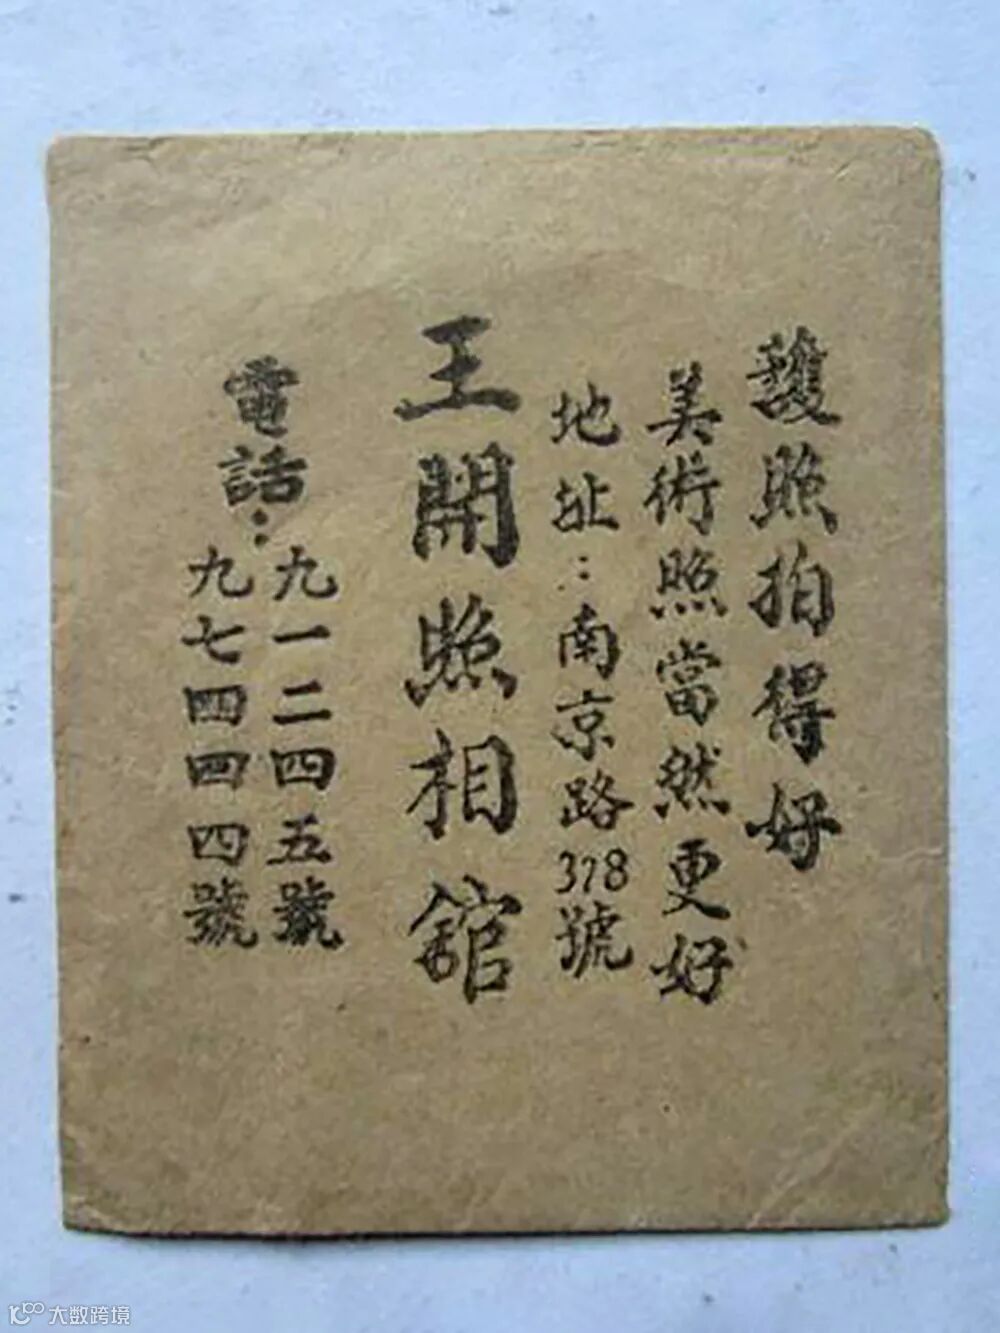 護照拍得好
美術照當然更好
地址：南京路378號
王開照相舘
電話：
九一二四五號
九七四四四號
大数跨境